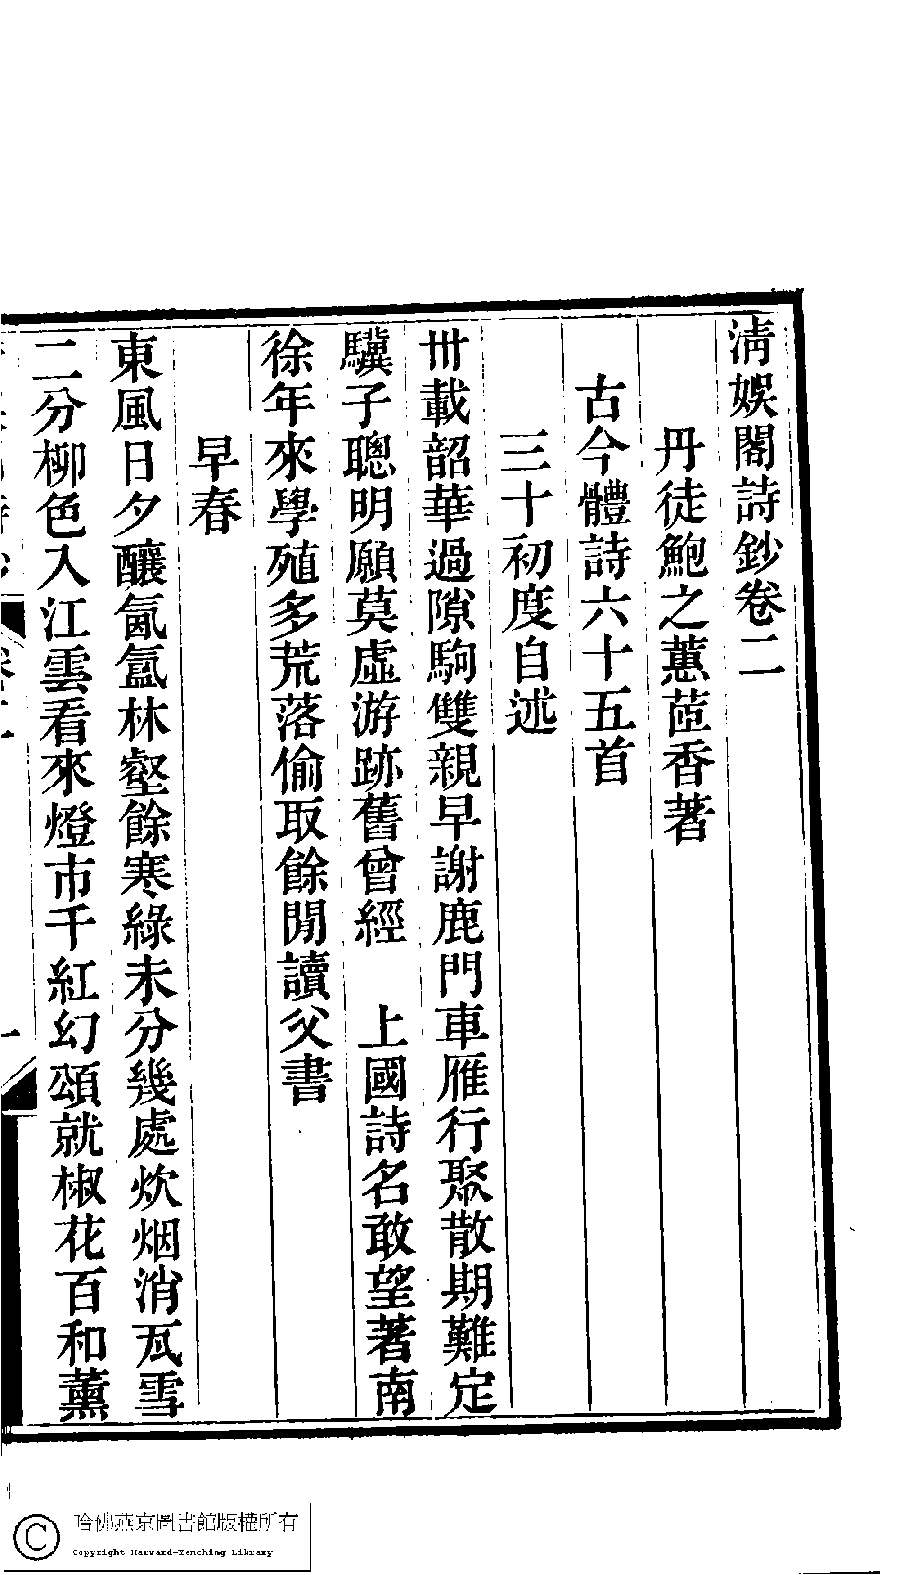 清娛閣詩鈔卷二
丹徒鮑之蕙茝香著
古今體詩六十五首
三十初度自述
卅載韶華過隙駒雙親早謝鹿門車雁行聚散期難定
驥子聰明願莫虛游跡舊曾經　上國詩名敢望著南
徐年來學殖多荒落偷取餘閒讀父書
早春
東風日夕釀氤氳林壑餘寒綠未分幾處炊烟消瓦雪
二分柳色入江雲看來燈市千紅幻頌就椒花百和薰
哈佛燕京圖書館版權所有
Copyright Harvard-Yenching Library